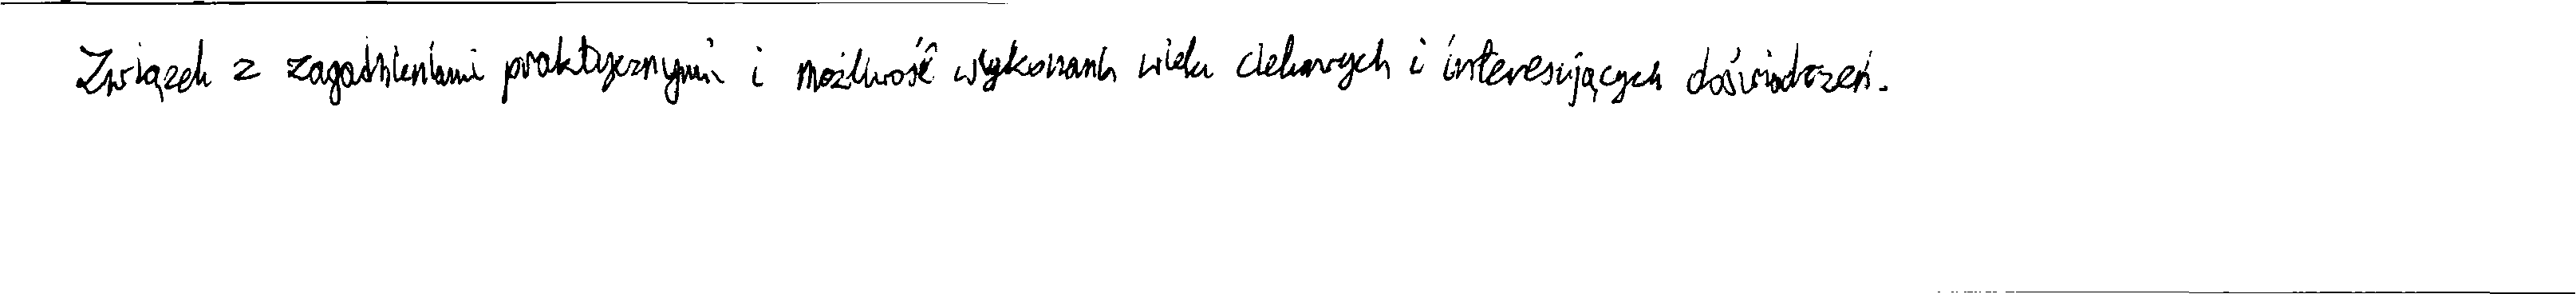 Związek z zagadnieniami praktycznymi i możliwość wykonania wielu ciekawych i interesujących doświadczeń.